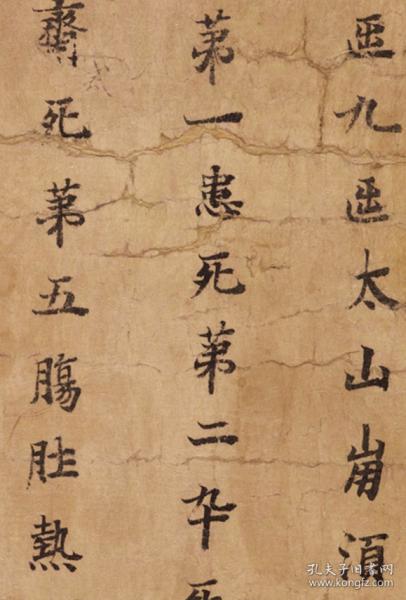 九
太山崩須
苐一患死苐二卆死
齋死苐五膓肚熱
孔夫子旧书网
www.kongfz.com